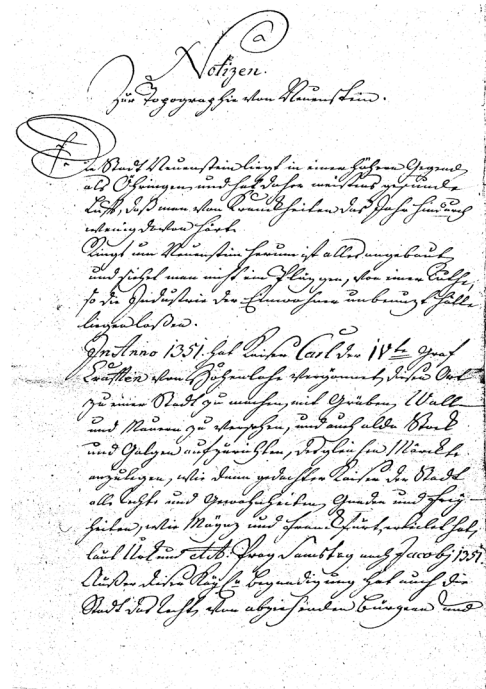 a
Notizen.
Zur Topographie von Neuenstein.
Die Stadt Neuenstein liegt in einer höhern Gegend
als Öhringen, und hat daher meistens gesunde
Luft, daß man von Krankheiten das Jahr hindurch
wenig davon hört.
Rings um Neuenstein herum ist alles angebaut
und siehet man nicht ein Pläzgen, von einer Ruthe,
so die Industrie der Einwohner unbenuzt hätte
liegen laßen.
In Anno 1351. hat Kaiser Carl der IVte Graf
Krafften von Hohenlohe vergönnet, diesen Ort
zu einer Stadt zu machen, mit Gräben, Wall
und Mauern zu versehen, und auch alda Stock
und Galgen aufzurichten, desgleichen Märckte
anzulegen, wie dann gedachter Kaiser der Stadt
alle Rechte und Gewohnheiten, Gnaden und Frey
heiten, wie Maynz und Franckfurt, ertheilet hat,
laut Urkund dd. Prag Samstag nach Jacobj 1351.
Außer dieser Begnadigung hat auch die
Stadt das Recht, von abziehenden Bürgern und